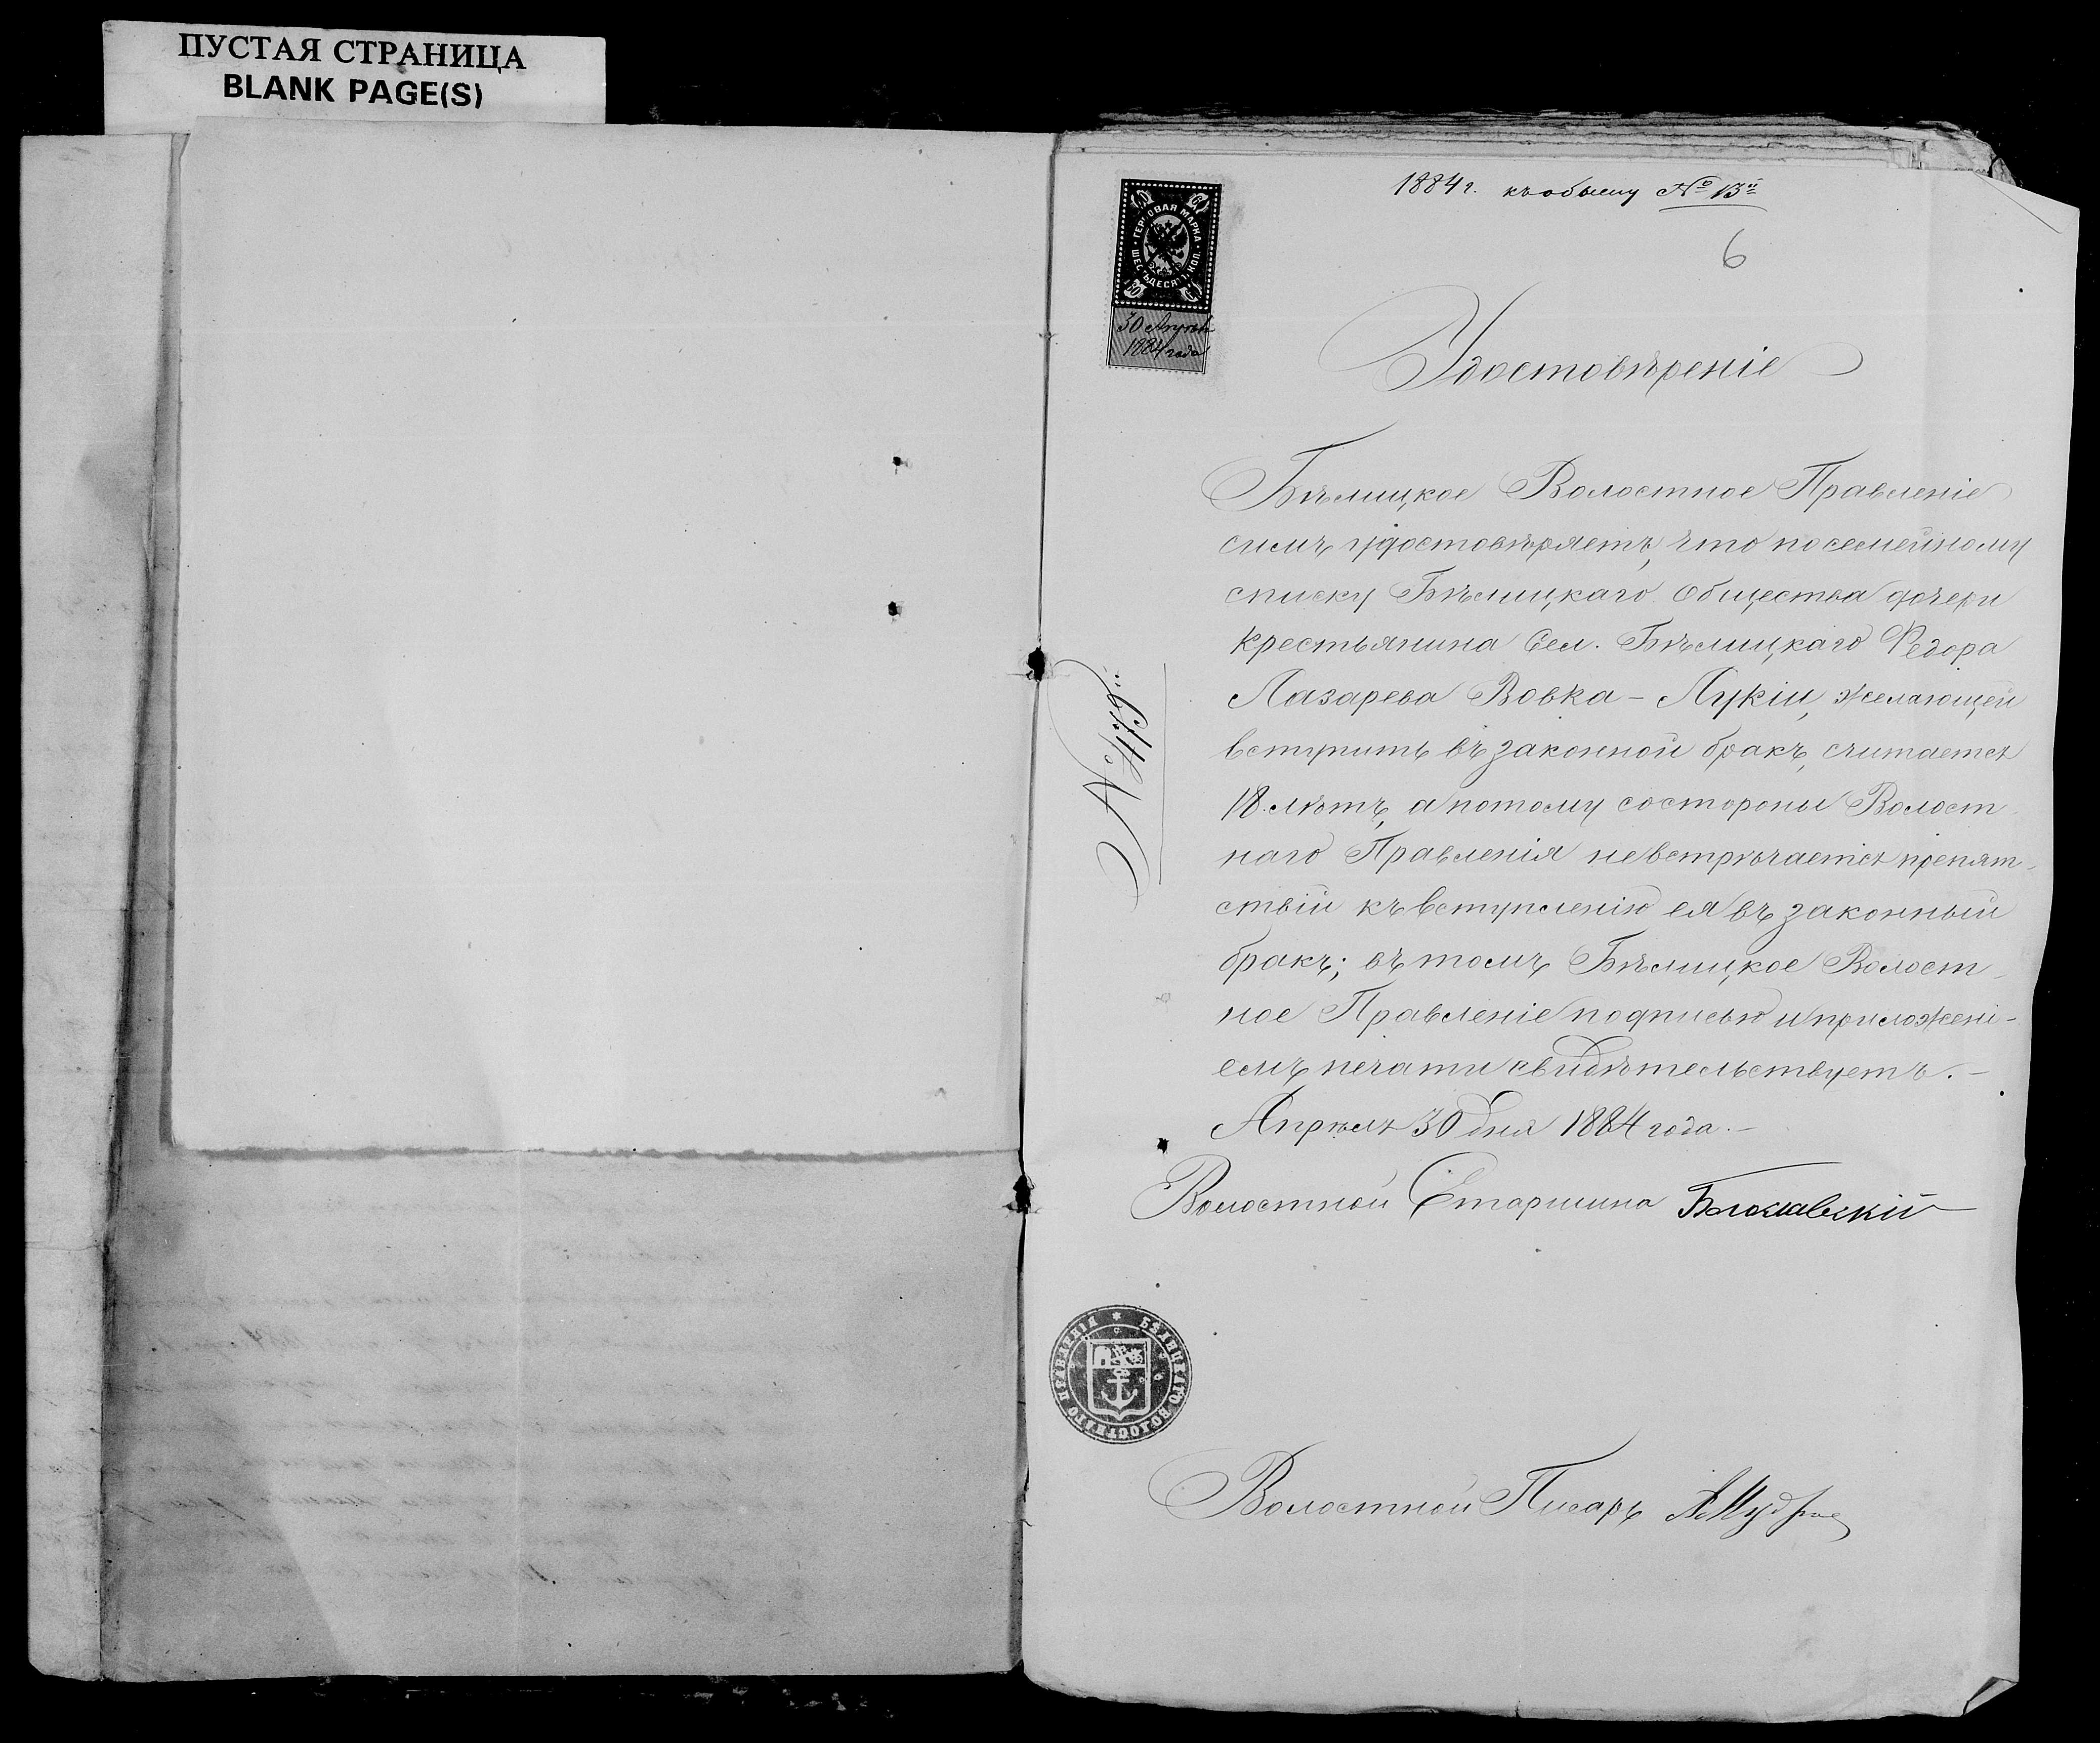 ПУСТАЯ СТРАНИЦА
BLANK PAGE(S)
1884 г. къ обыску № 13й
6
ГЕРБОВАЯ МАРКА
ШЕСТЬДЕСЯТЪ КОП.
60
30 Апрѣля
1884 года
Удостовѣреніе
Бѣлицкое Волостное Правленіе
симъ удостовѣряетъ, что по семейному
списку Бѣлицкаго Общества дочери
крестьянина Сел. Бѣлицкаго Федора
Лазарева Вовка – Лукіи, желающей
вступить въ законной бракъ, считается
18 лѣтъ, а потому со стороны Волост
наго Правленія не встрѣчается препят-
ствій къ вступленію ея въ законный
бракъ; въ томъ Бѣлицкое Волост-
ное Правленіе подписью и приложені-
емъ печати свидѣтельствуетъ. –
Апрѣля 30 дня 1884 года. –
№ 479й
Волостной Старшина
БѢЛИЦКАГО ВОЛОСТНАГО ПРАВЛЕНІЯ
Волостной Писарь